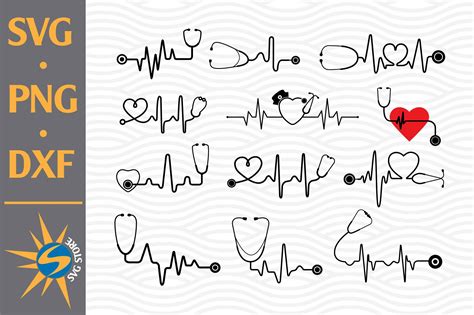 SVG
•
PNG
•
DXF
S
SVG STORE